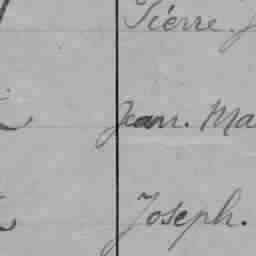 Pierre.
Jean. Ma
Joseph.